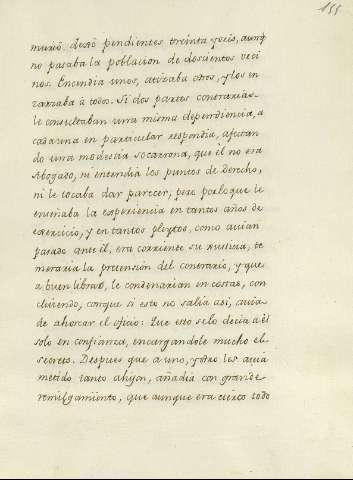 155
murio dexò pendientes treinta y seis, aunqe
no pasaba la poblacion de doscientos veci
nos. Encendia unos, atizaba otros, y los en
zarzaba à todos. Si dos partes contrarias
le consultaban una misma dependiencia, a
cada una en particular respondia, afectan
do una modestia socarrona, que èl no era
Abogado, ni entendia los puntos de Derecho,
ni le tocaba dar parecer, pero por lo que le
enseñaba la experiencia en tantos años de
exercicio, y en tantos pleytos, como avian
pasado ante èl, era corriente su Justizia, te
meraria la pretension del contrario, y que
a buen librar, le condenarian en costas, con
cluiendo, conque si esto no salia asi, avia
de ahorcar el oficio: Que esto se lo decia a èl
solo en confianza, encargandole mucho el
secreto. Despues que a uno, y otro les avia
metido tanto ahijon, añadia con grande
remilgamiento, que aunque era cierto todo